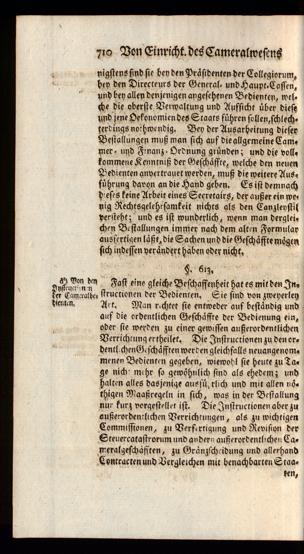 710 Von Einricht. des Cameralwesens
nigstens sind sie bey den Präsidenten der Collegiorum,
bey den Directeurs der General- und Haupt-Cassen,
und bey allen denjenigen angesehenen Bedienten, wel-
che die oberste Verwaltung und Aufsicht über diese
und jene Oekonomien des Staats führen sollen, schlech-
terdings nothwendig. Bey der Ausarbeitung dieser
Bestallungen muß man sich auf die allgemeine Cam-
mer- und Finanz-Ordnung gründen; und die voll-
kommene Kenntniß der Geschäffte, welche den neuen
Bedienten anvertrauet werden, muß die weitere Aus-
führung davon an die Hand geben. Es ist demnach
dieses keine Arbeit eines Secretairs, der außer ein we-
nig Rechtsgelehrsamkeit nichts als den Canzlerstil
verstehet; und es ist wunderlich, wenn man derglei-
chen Bestallungen immer nach dem alten Formular
ausfertigen läßt, die Sachen und die Geschäffte mögen
sich indessen verändert haben oder nicht.
§. 613.
Von den
Instructionen
der Cameralbe-
dienten.
Fast eine gleiche Beschaffenheit hat es mit den In-
structionen der Bedienten. Sie sind von zweyerley
Art. Man richtet sie entweder auf beständig und
auf die ordentlichen Geschäffte der Bedienung ein,
oder sie werden zu einer gewissen außerordentlichen
Verrichtung ertheilet. Die Instructionen zu den or-
dentlichen Geschäfften werden gleichfalls neuangenom-
menen Bedienten gegeben, wiewohl sie heute zu Ta-
ge nicht mehr so gewöhnlich sind als ehedem; und
halten alles dasjenige ausführlich und mit allen nö-
thigen Maaßregeln in sich, was in der Bestallung
nur kurz vorgestellet ist. Die Instructionen aber zu
außerordentlichen Verrichtungen, als zu wichtigen
Commissionen, zu Verfertigung und Revision der
Steuercatastrorum und andern außerordentlichen Ca-
meralgeschäfften, zu Gränzscheidung und allerhand
Contracten und Vergleichen mit benachbarten Staa-
ten,